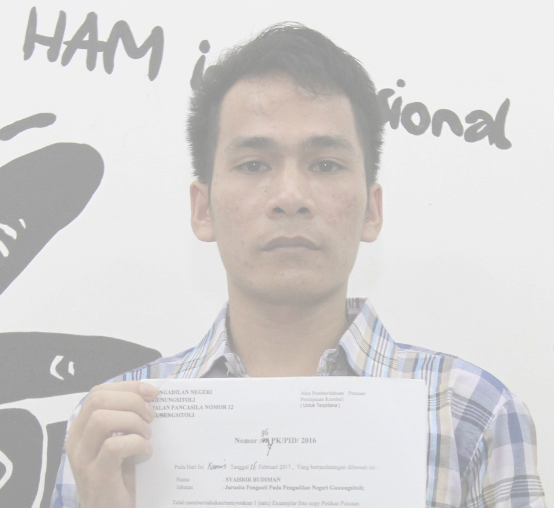 HAM i sional
PENGADILAN NEGERI
GUNUNGSITOLI
JALAN PANCASILA NOMOR 12
GUNUNGSITOLI
Akta Pemberitahuan Putusan
Peninjauan Kembali
( Untuk Terpidana )
Nomor PK/PID/ 2016
Pada Hari ini Kamis Tanggal 16 Februari 2017, Yang bertandatangan dibawah ini :
Nama : SYAHROR BUDIMAN
Jabatan : Jurusita Pengganti Pada Pengadilan Negeri Gunungsitoli;
Telah memberitahukan/menyerahkan 1 (satu) Examplar foto copy Petikan Putusan